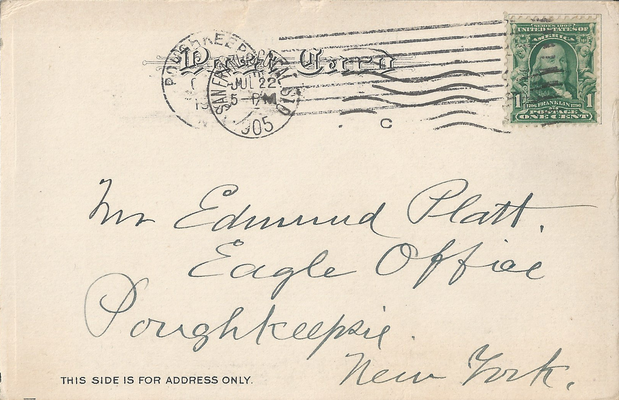 Postal Card
POUGHKEEPSIE
SAN FRANCISCO, CAL.
JUL 22
5
1905
STA
C
SERIES 1902
UNITED STATES OF
AMERICA
1 FRANKLIN 1
POSTAGE
ONE CENT
Mr Edmund Platt.
Eagle Office
Poughkeepsie.
New York.
THIS SIDE IS FOR ADDRESS ONLY.